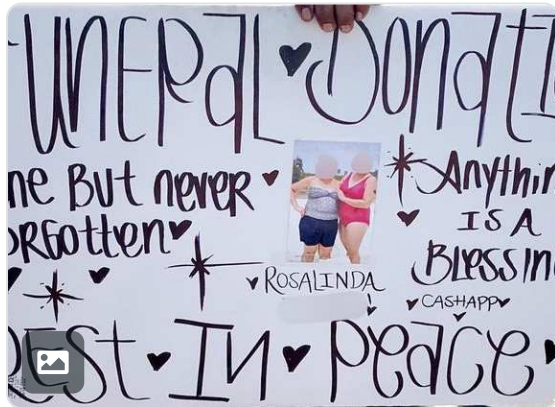 UNERAL DONATI
NE BUT NEVER
ORGOTTEN
ANYTHIN
IS A
BLESSIN
ROSALINDA
CASHAPP
EST IN PEACE